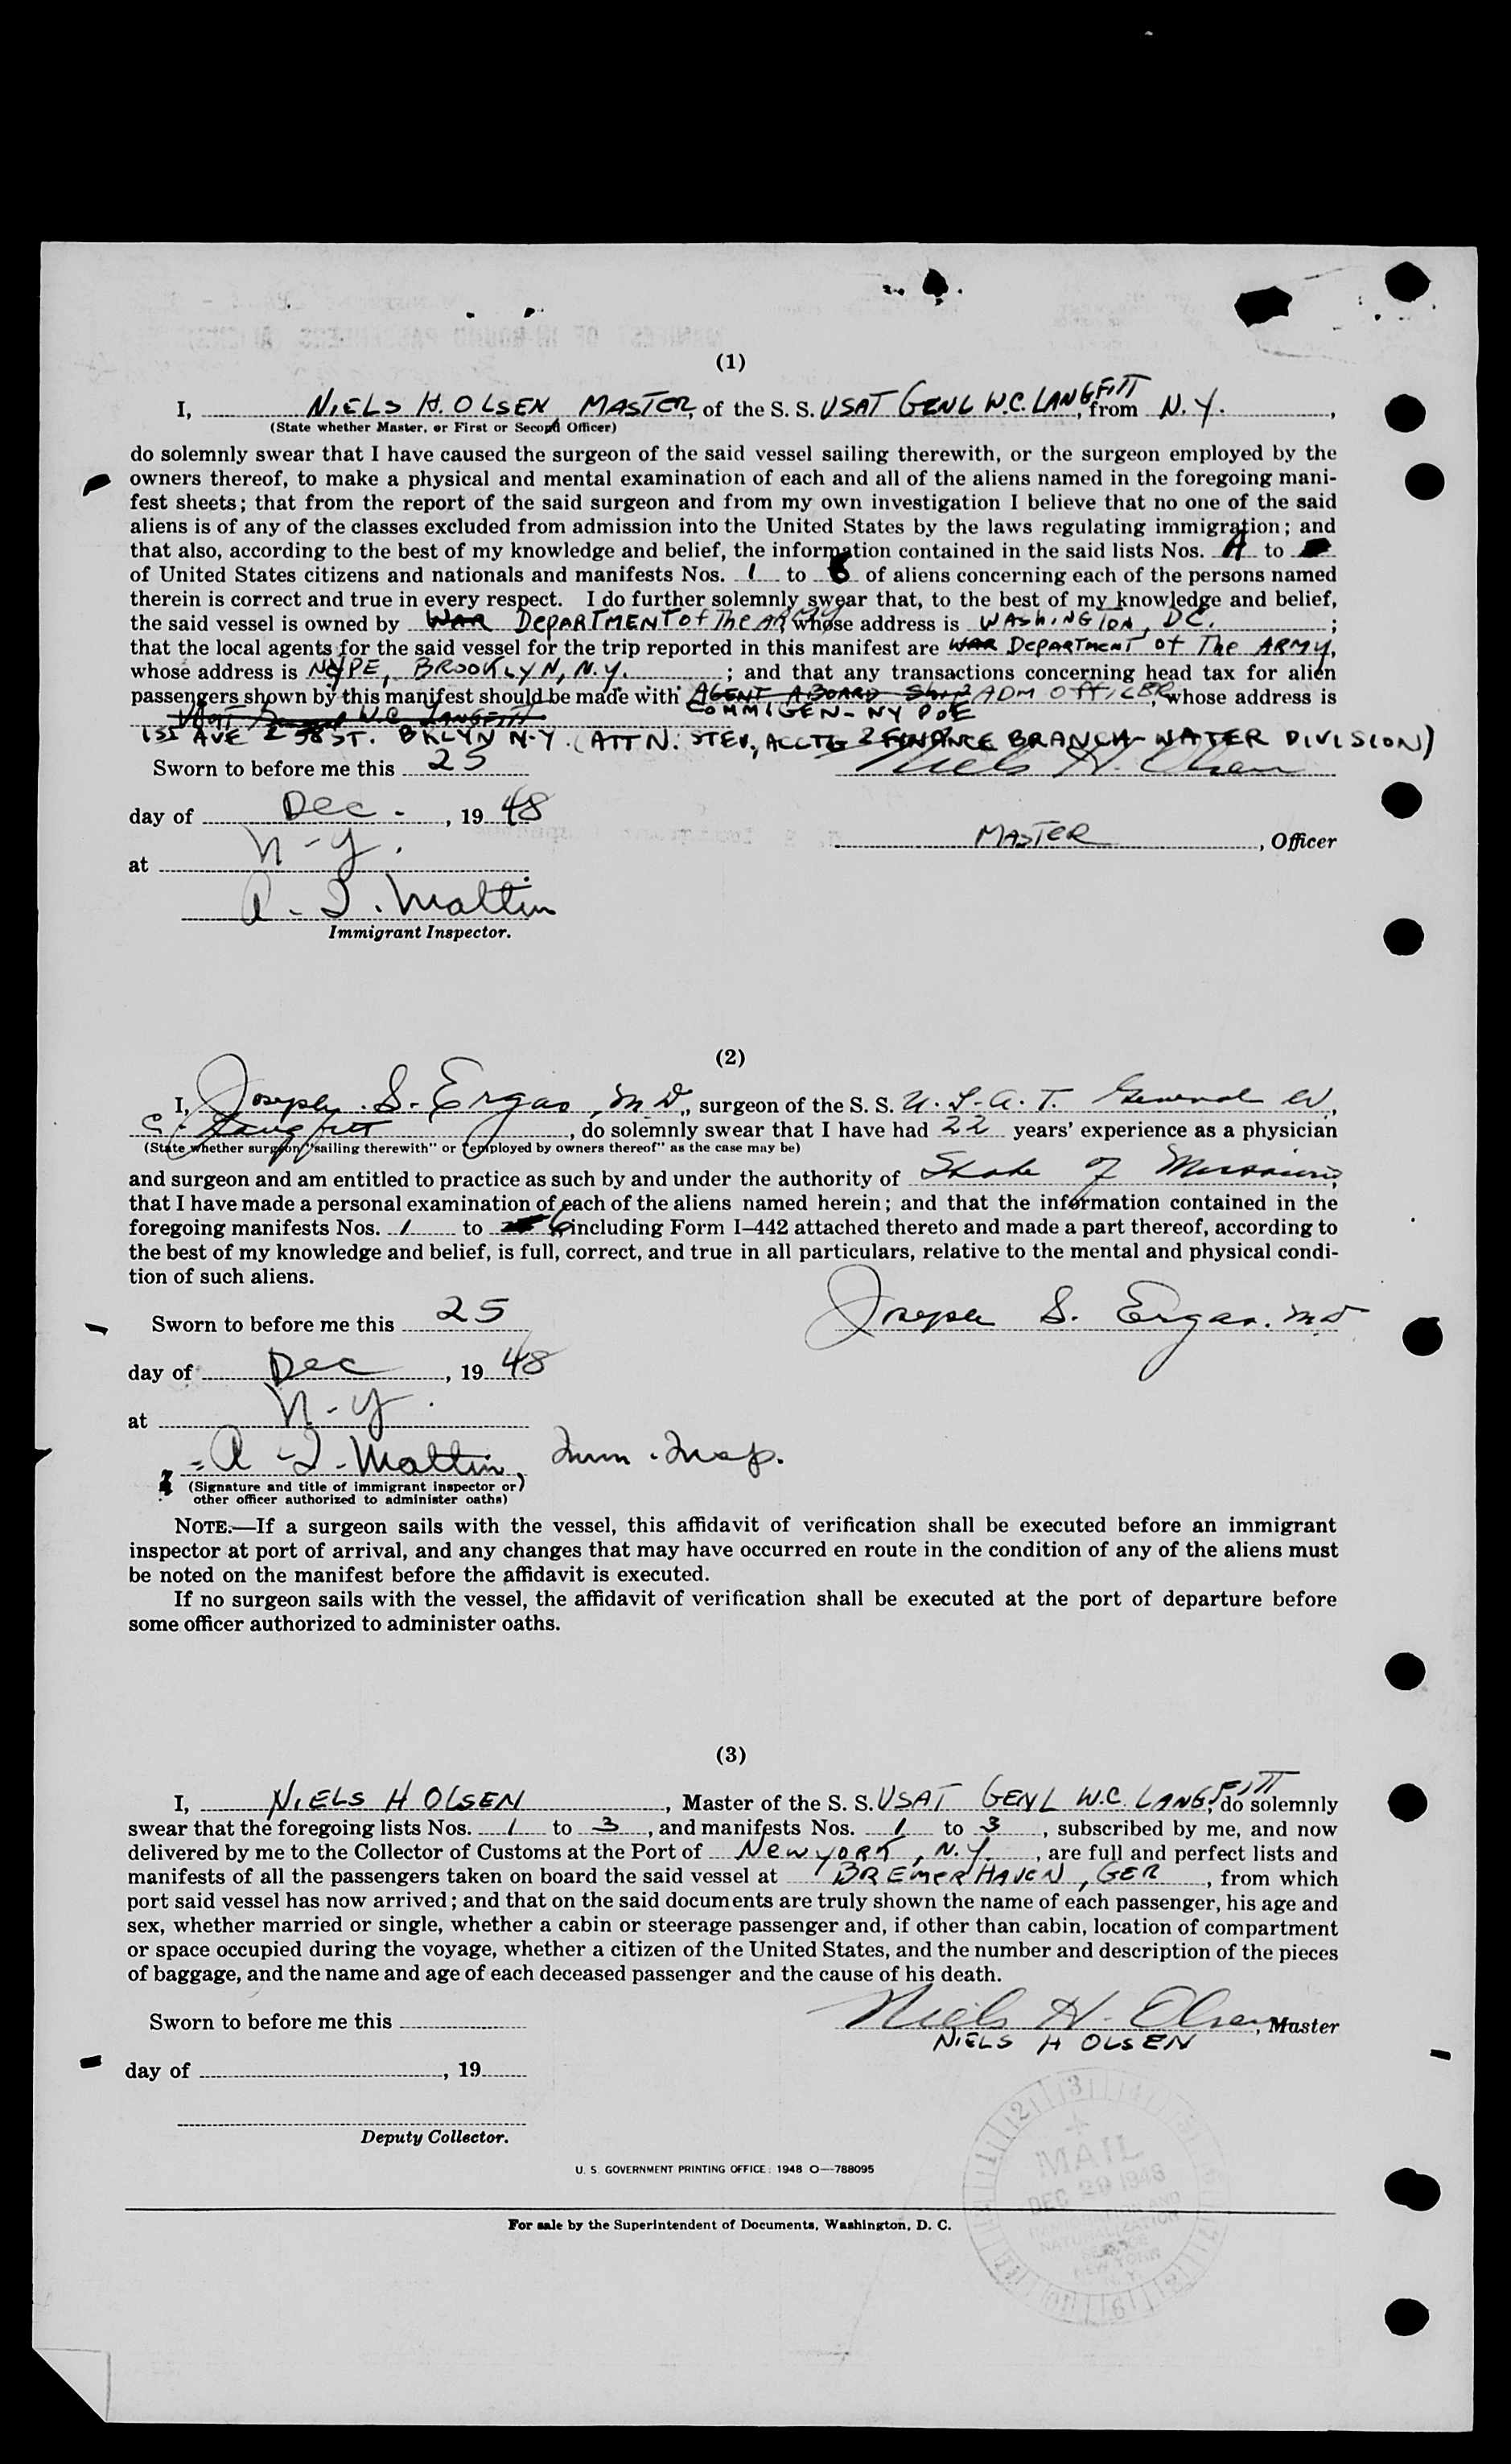 (1)
I, NIELS H. OLSEN, MASTER, of the S. S. USAT GENL W.C. LANGFITT, from N.Y.,
(State whether Master, or First or Second Officer)
do solemnly swear that I have caused the surgeon of the said vessel sailing therewith, or the surgeon employed by the
owners thereof, to make a physical and mental examination of each and all of the aliens named in the foregoing mani-
fest sheets; that from the report of the said surgeon and from my own investigation I believe that no one of the said
aliens is of any of the classes excluded from admission into the United States by the laws regulating immigration; and
that also, according to the best of my knowledge and belief, the information contained in the said lists Nos. A to
of United States citizens and nationals and manifests Nos. 1 to 6 of aliens concerning each of the persons named
therein is correct and true in every respect. I do further solemnly swear that, to the best of my knowledge and belief,
the said vessel is owned by WAR DEPARTMENT of The ARMY whose address is WASHINGTON, DC. ;
that the local agents for the said vessel for the trip reported in this manifest are WAR DEPARTMENT of The ARMY,
whose address is NYPE, BROOKLYN, N.Y. ; and that any transactions concerning head tax for alien
passengers shown by this manifest should be made with AGENT ABOARD SHIP ADM OFFICER, whose address is
COMMIGEN - NY POE
USAT W.C. LANGFITT
AVE & 58 ST. BKLYN N.Y. (ATTN: STEV, ACCTG & FINANCE BRANCH - WATER DIVISION)
Sworn to before me this 25 Niels H. Olsen
day of Dec. , 19 48
MASTER , Officer
at N.Y.
A. I. Mattin
Immigrant Inspector.
(2)
I, Joseph S. Ergas, M.D., surgeon of the S. S. U.S.A.T. General W.
C. Langfitt, do solemnly swear that I have had 22 years' experience as a physician
(State whether surgeon "sailing therewith" or "employed by owners thereof" as the case may be)
and surgeon and am entitled to practice as such by and under the authority of State of Missouri,
that I have made a personal examination of each of the aliens named herein; and that the information contained in the
foregoing manifests Nos. 1 to 6 including Form I-442 attached thereto and made a part thereof, according to
the best of my knowledge and belief, is full, correct, and true in all particulars, relative to the mental and physical condi-
tion of such aliens.
Sworn to before me this 25 Joseph S. Ergas. MD
day of Dec , 19 48
at N.Y.
A. I. Mattin, Imm. Insp.
(Signature and title of immigrant inspector or
other officer authorized to administer oaths)
NOTE.—If a surgeon sails with the vessel, this affidavit of verification shall be executed before an immigrant
inspector at port of arrival, and any changes that may have occurred en route in the condition of any of the aliens must
be noted on the manifest before the affidavit is executed.
If no surgeon sails with the vessel, the affidavit of verification shall be executed at the port of departure before
some officer authorized to administer oaths.
(3)
I, NIELS H OLSEN, Master of the S. S. USAT GENL W.C. LANGFITT, do solemnly
swear that the foregoing lists Nos. 1 to 3, and manifests Nos. 1 to 3, subscribed by me, and now
delivered by me to the Collector of Customs at the Port of New YORK, N.Y., are full and perfect lists and
manifests of all the passengers taken on board the said vessel at BREMERHAVEN, GER, from which
port said vessel has now arrived; and that on the said documents are truly shown the name of each passenger, his age and
sex, whether married or single, whether a cabin or steerage passenger and, if other than cabin, location of compartment
or space occupied during the voyage, whether a citizen of the United States, and the number and description of the pieces
of baggage, and the name and age of each deceased passenger and the cause of his death.
Sworn to before me this Niels H. Olsen, Master
NIELS H OLSEN
day of , 19
Deputy Collector.
U. S. GOVERNMENT PRINTING OFFICE: 1948 O—788095
For sale by the Superintendent of Documents, Washington, D. C.
MAIL
DEC 29 1948
IMMIGRATION AND
NATURALIZATION
SERVICE
NEW YORK
N.Y.